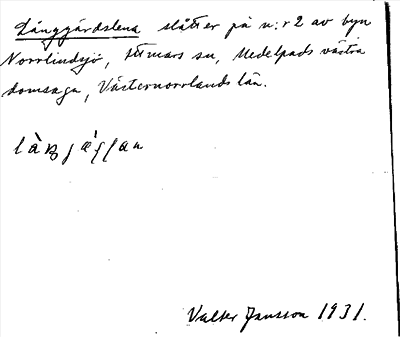 Långgärdslena slåtter på n:r 2 av byn
Norrlindsjö, Attmars sn, Medelpads västra
domsaga, Västernorrlands län.
Valter Jansson 1931.